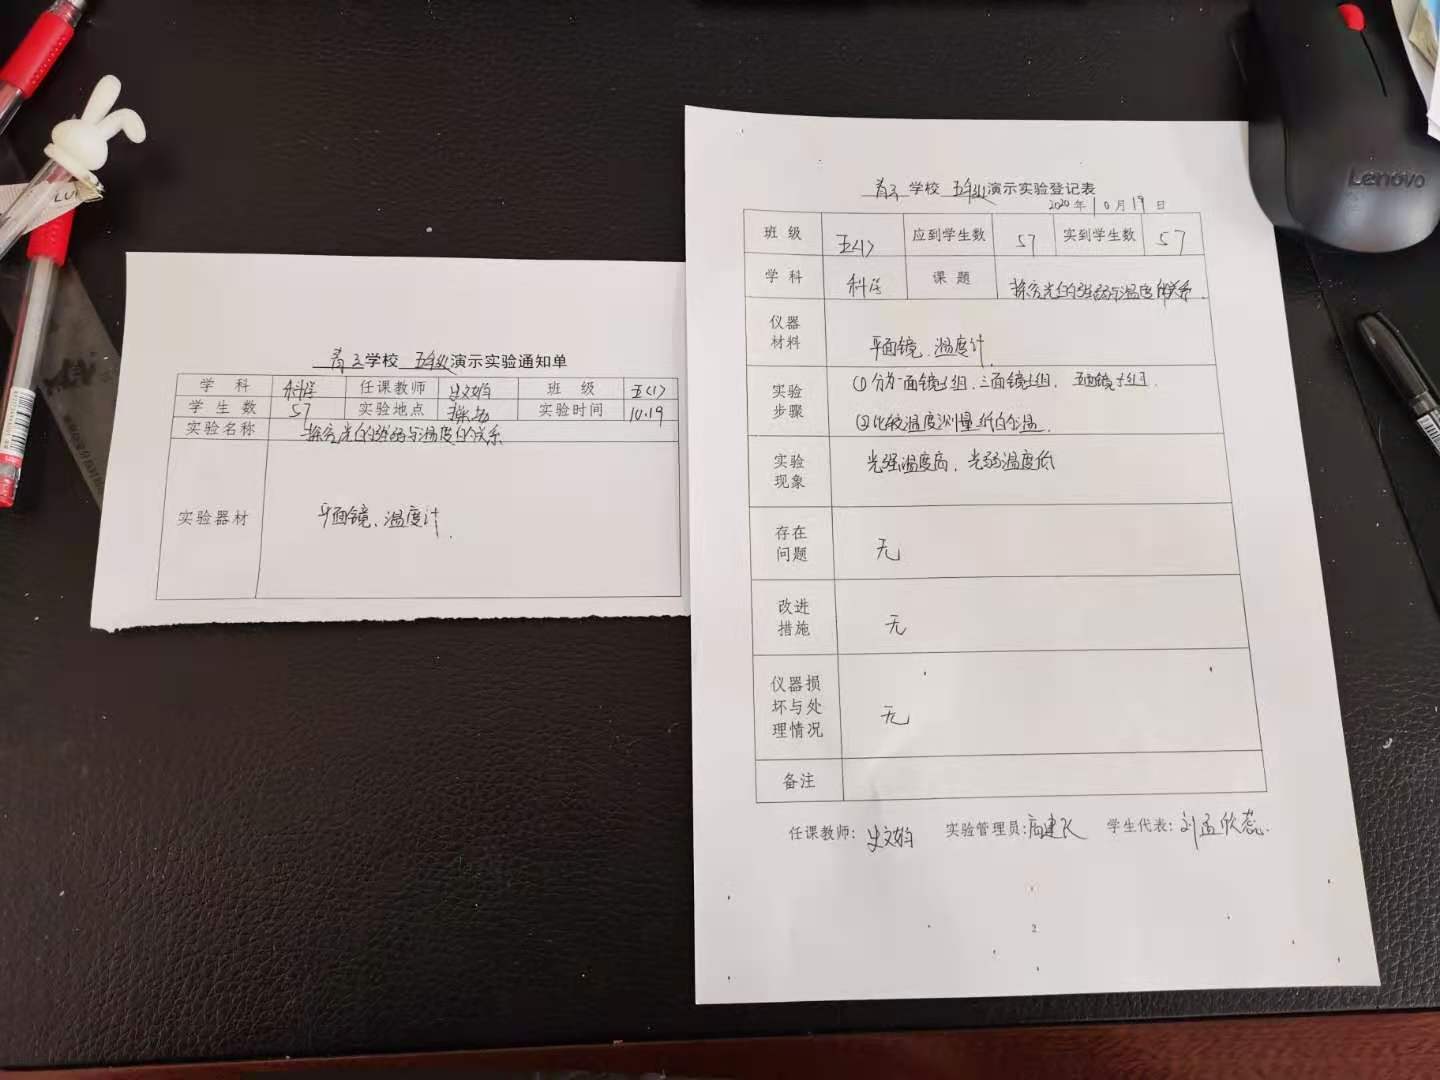 学校 五年级演示实验通知单
学 科 科学 任课教师 史文娟 班 级 五(1)
学 生 数 57 实验地点 实验时间 10.19
实验名称 探究光的强弱与温度的关系
实验器材 平面镜、温度计.
学校 五年级演示实验登记表
2020年10月19日
班 级 五(1) 应到学生数 57 实到学生数 57
学 科 科学 课 题 探究光的强弱与温度的关系.
仪器
材料 平面镜、温度计.
实验
步骤 (1)分为一面镜子组、三面镜子组、五面镜子组.
(2)比较温度测量纸的温
实验
现象 光强温度高、光弱温度低
存在
问题 无
改进
措施 无
仪器损
坏与处
理情况 无
备注
任课教师: 史文娟 实验管理员: 学生代表: 刘孟欣蕊.
2
Lenovo